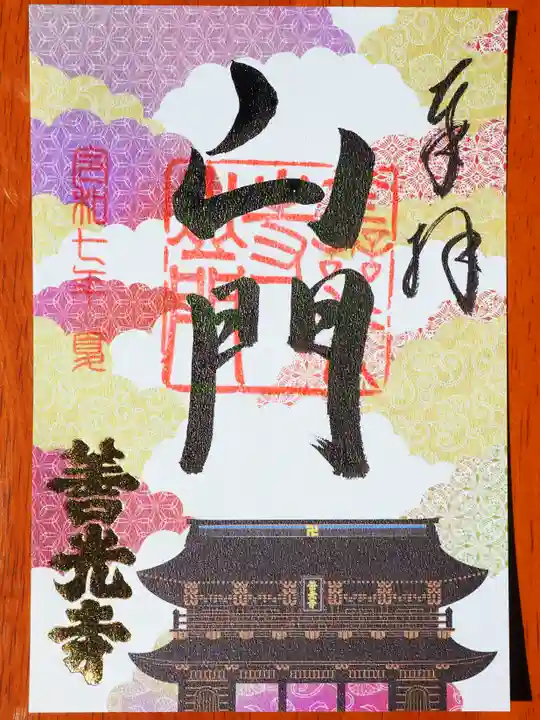 奉拝
山門
令和七年 夏
善光寺
善光寺